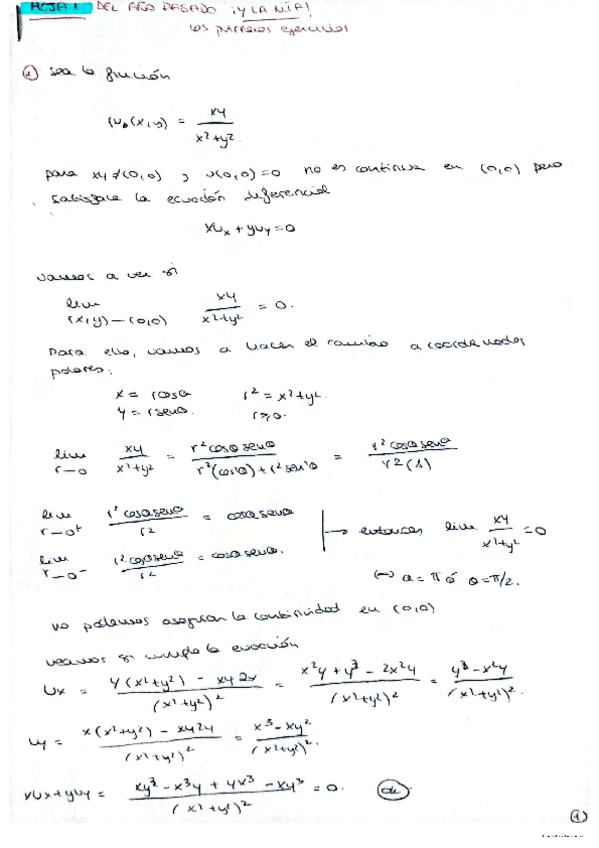 HOJA 1 DEL AÑO PASADO ¡Y LA MÍA!
los primeros ejercicios
① Sea la función
u(x,y) = xy / x²+y²
para xy≠(0,0) y u(0,0)=0 no es continua en (0,0) pero
satisface la ecuación diferencial
xux + yuy = 0
vamos a ver si
lim (x,y)→(0,0) xy / x²+y² = 0.
Para ello, vamos a hacer el cambio a coordenadas
polares:
x = rcosθ r² = x²+y²
y = rsenθ. r≥0.
lim r→0 xy / x²+y² = r²cosθsenθ / r²(cos²θ)+r²sen²θ = r²cosθsenθ / r²(1)
lim r→0⁺ r²cosθsenθ / r² = cosθsenθ
lim r→0⁻ r²cosθsenθ / r² = cosθsenθ. → entonces lim xy / x²+y² = 0
⇔ θ = π ó θ = π/2.
no podemos asegurar la continuidad en (0,0)
veamos si cumple la ecuación
Ux = y(x²+y²) - xy2x / (x²+y²)² = x²y + y³ - 2x²y / (x²+y²)² = y³ - x²y / (x²+y²)².
uy = x(x²+y²) - xy2y / (x²+y²)² = x³ - xy² / (x²+y²)².
xux + yuy = xy³ - x³y + yx³ - xy³ / (x²+y²)² = 0. ok
①